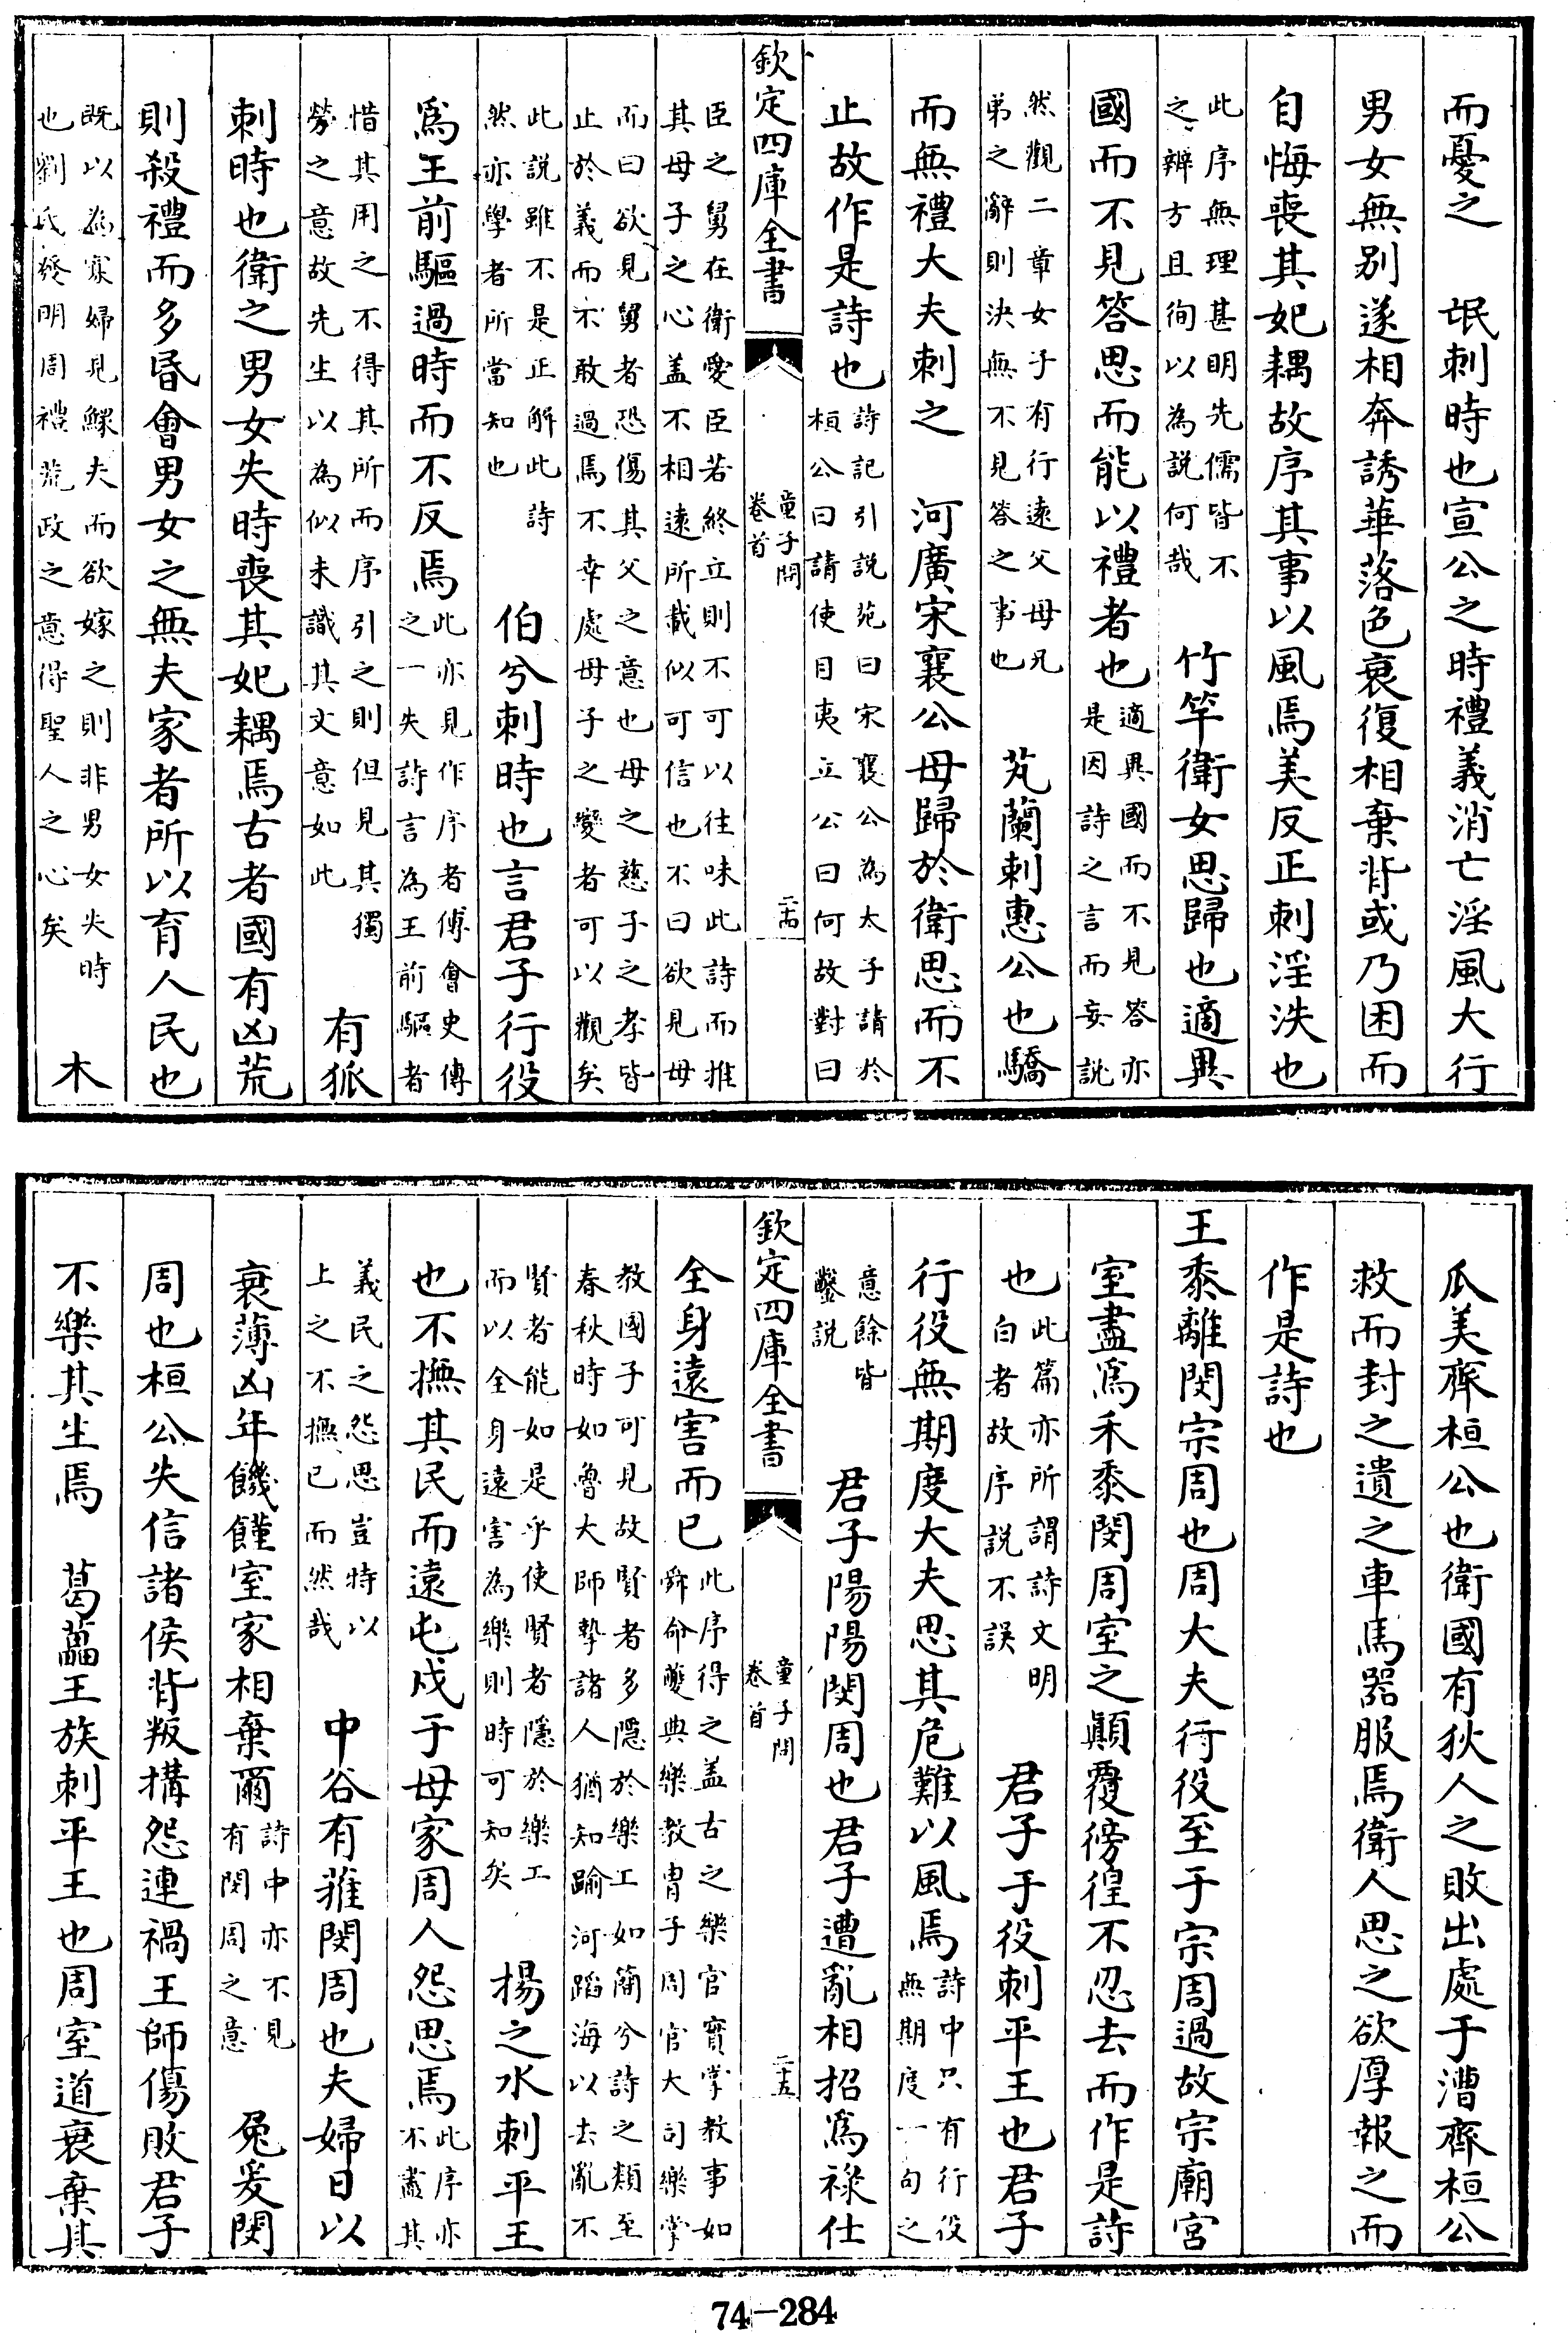 而憂之　氓刺時也宣公之時禮義消亡淫風大行
男女無别遂相奔誘華落色衰復相棄背或乃困而
自悔喪其妃耦故序其事以風焉美反正刺淫泆也
此序無理甚明先儒皆不
之辨方且徇以為説何哉
竹竿衛女思歸也適異
國而不見答思而能以禮者也
適異國而不見答亦
是因詩之言而妄説
然觀二章女子有行遠父母兄
弟之辭則決無不見答之事也
芄蘭刺惠公也驕
而無禮大夫刺之　河廣宋襄公母歸於衛思而不
止故作是詩也
詩記引説苑曰宋襄公為太子請於
桓公曰請使目夷立公曰何故對曰
欽定四庫全書
童子問
卷首
二十四
臣之舅在衛愛臣若終立則不可以往味此詩而推
其母子之心盖不相遠所載似可信也不曰欲見母
而曰欲見舅者恐傷其父之意也母之慈子之孝皆
止於義而不敢過焉不幸處母子之變者可以觀矣
此説雖不是正解此詩
然亦學者所當知也
伯兮刺時也言君子行役
爲王前驅過時而不反焉
此亦見作序者傅會史傳
之一失詩言為王前驅者
惜其用之不得其所而序引之則但見其獨
勞之意故先生以為似未識其文意如此
有狐
刺時也衛之男女失時喪其妃耦焉古者國有凶荒
則殺禮而多昏會男女之無夫家者所以育人民也
既以為寡婦見鰥夫而欲嫁之則非男女失時
也劉氏發明周禮荒政之意得聖人之心矣
木
瓜美齊桓公也衛國有狄人之敗出處于漕齊桓公
救而封之遺之車馬器服焉衛人思之欲厚報之而
作是詩也
王黍離閔宗周也周大夫行役至于宗周過故宗廟宫
室盡爲禾黍閔周室之顛覆徬徨不忍去而作是詩
也
此篇亦所謂詩文明
白者故序説不誤
君子于役刺平王也君子
行役無期度大夫思其危難以風焉
詩中只有行役
無期度一句之
意餘皆
鑿説
君子陽陽閔周也君子遭亂相招爲祿仕
欽定四庫全書
童子問
卷首
二十五
全身遠害而已
此序得之盖古之樂官實掌教事如
舜命夔典樂教胄子周官大司樂掌
教國子可見故賢者多隱於樂工如簡兮詩之類至
春秋時如魯大師摯諸人猶知踰河蹈海以去亂不
賢者能如是乎使賢者隱於樂工
而以全身遠害為樂則時可知矣
揚之水刺平王
也不撫其民而遠屯戍于母家周人怨思焉
此序亦
不盡其
義民之怨思豈特以
上之不撫已而然哉
中谷有蓷閔周也夫婦日以
衰薄凶年饑饉室家相棄爾
詩中亦不見
有閔周之意
兔爰閔
周也桓公失信諸侯背叛構怨連禍王師傷敗君子
不樂其生焉　葛藟王族刺平王也周室道衰棄其
74-284